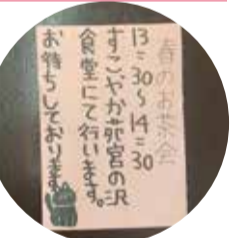 春のお茶会
13:30~14:30
すこやか苑宮の沢
食堂にて行います。
お待ちしております。